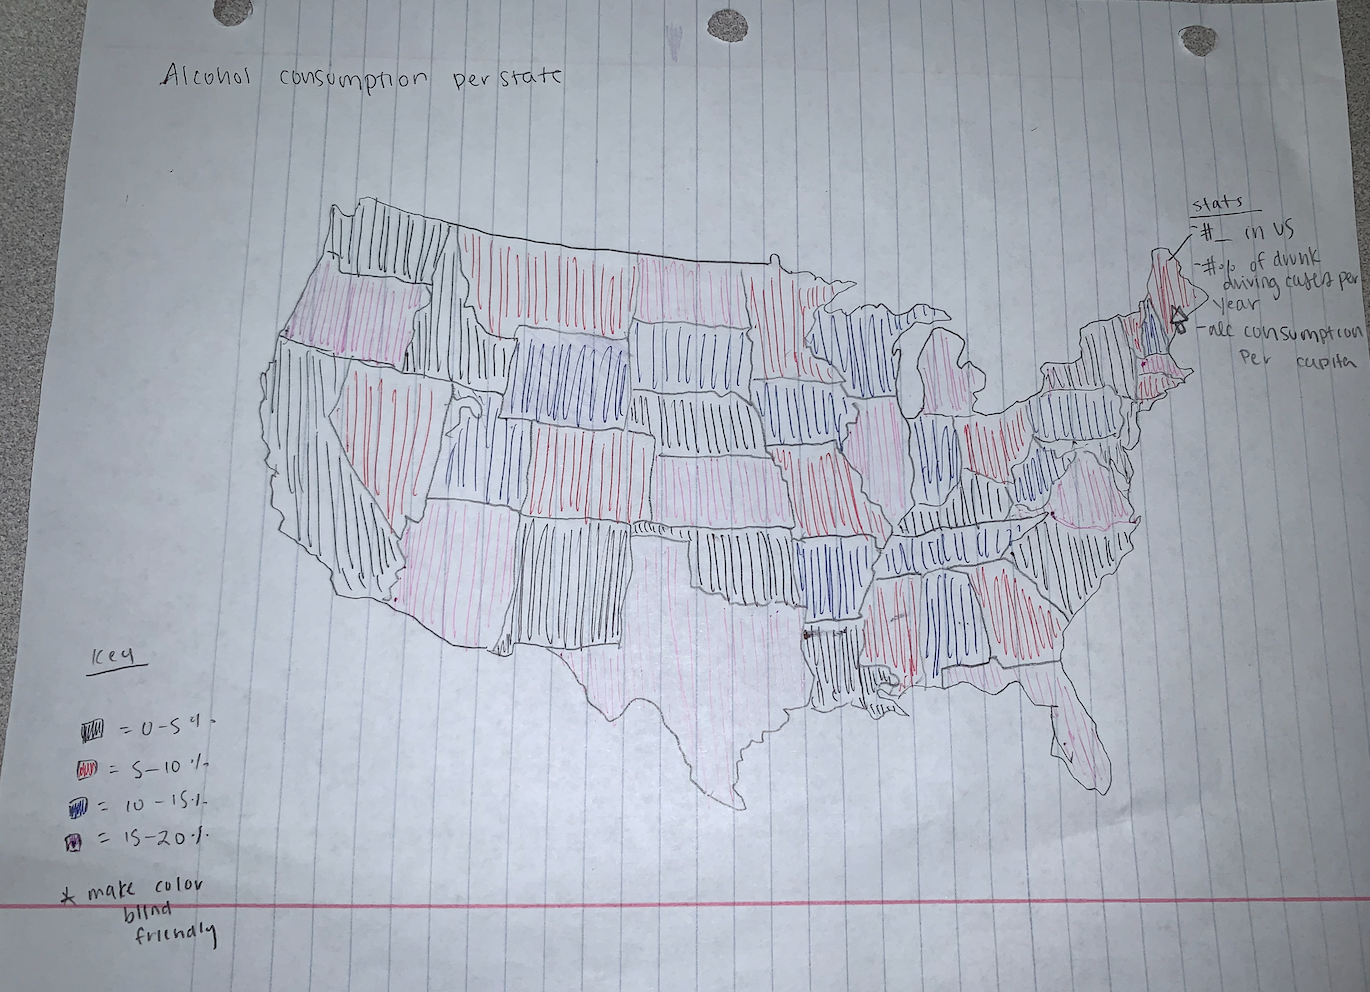 Alcohol consumption per state
stats
- #_ in US
- # % of drunk
driving cases per
year
- alc consumption
per capita
Key
= 0-5%
= 5-10%
= 10-15%
= 15-20%
* make color
blind
friendly